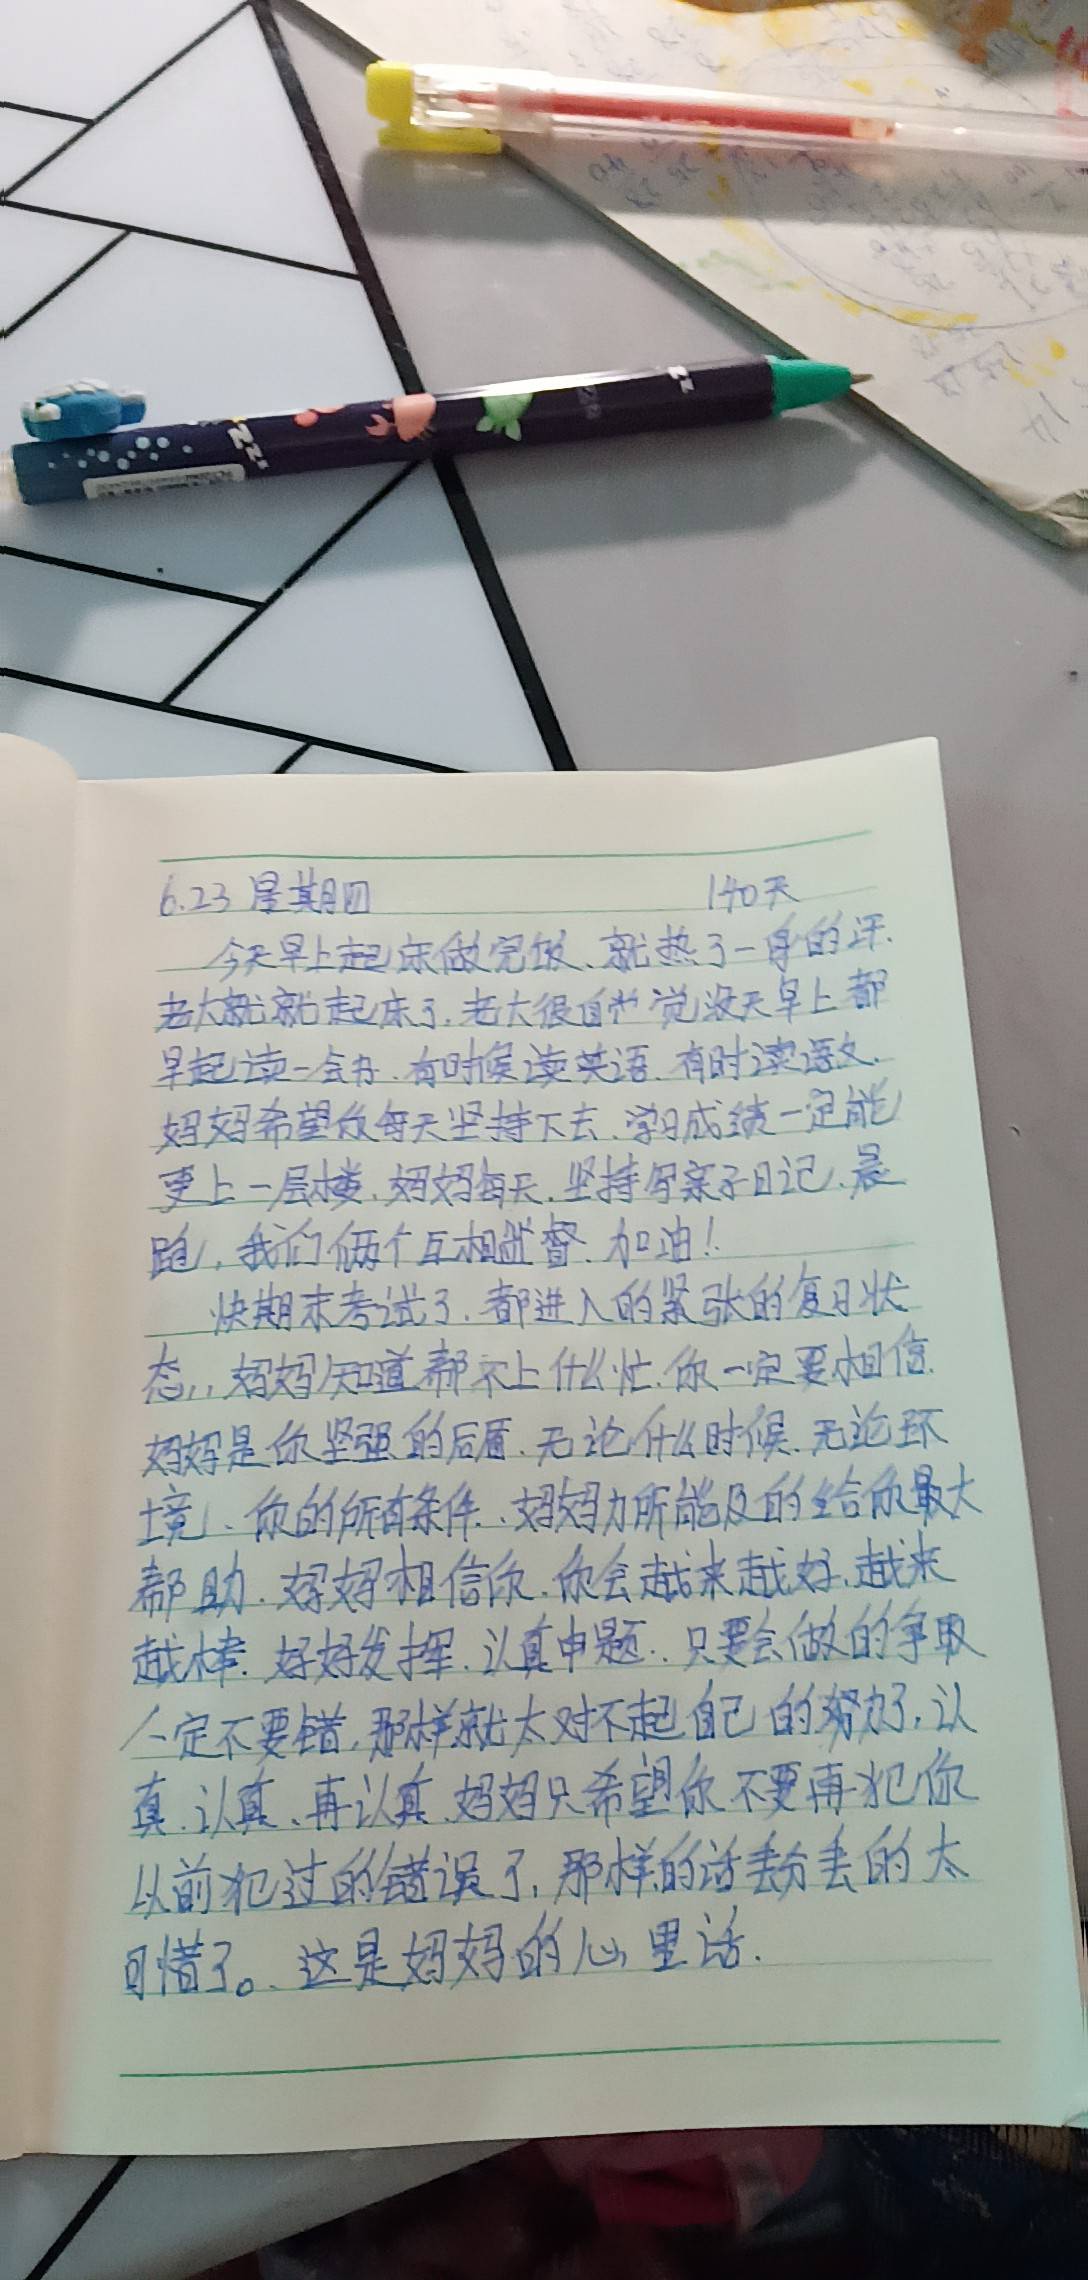 zz
zz
6.23 星期四 140天
今天早上起床做完饭、就热了一身的汗.
老大就就起床了.老大很自觉没天早上都
早起读一会书、有时候读英语、有时读语文.
妈妈希望你每天坚持下去、学习成绩一定能
更上一层楼、妈妈每天、坚持写亲子日记、晨
跑,我们俩个互相监督、加油!
快期末考试了.都进入的紧张的复习状
态,,妈妈知道帮不上什么忙.你一定要相信.
妈妈是你坚强的后盾.无论什么时候.无论环
境、你的所有条件、妈妈力所能及的给你最大
帮助.妈妈相信你.你会越来越好、越来
越棒.好好发挥.认真申题..只要会做的争取
一定不要错,那样就太对不起自己的努力了,认
真.认真、再认真.妈妈只希望你不要再犯你
以前犯过的错误了,那样的话丢分丢的太
可惜了。、这是妈妈的心里话.